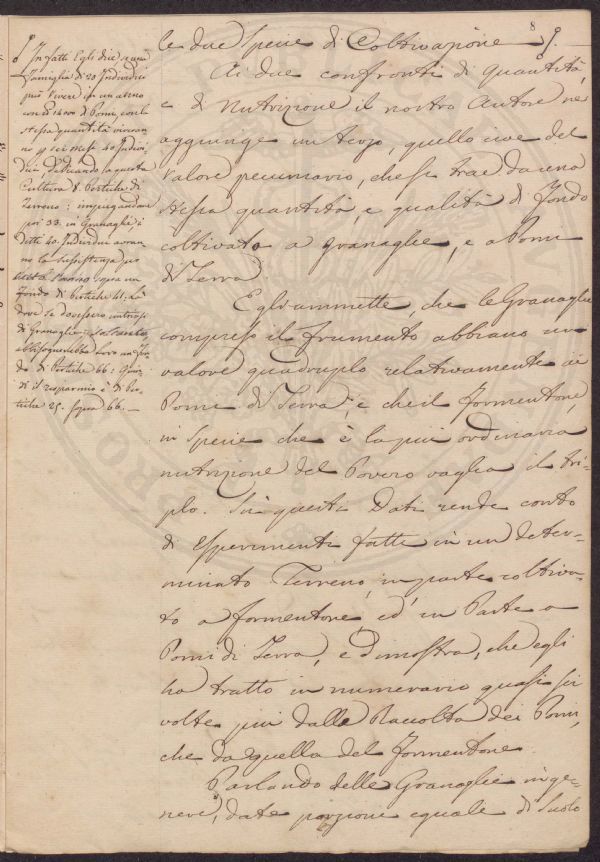 8
le due Specie di Coltivazione
Ai due confronti di quantità,
e di Nutrizione il nostro Autore ne
aggiunge un terzo, quello cioe del
Valore pecuniario, che si trae da una
stessa quantità, e qualità di Fondo
coltivato a granaglie, e a Pomi
di Terra.
Egli ammette, che le Granaglie
compreso il frumento abbiano un
valore quadruplo relativamente ai
Pomi di Terra, e che il formentone,
in specie che è la più ordinaria
nutrizione del Povero vaglia il tri-
plo. Su questi Dati rende conto
di esperimenti fatti in un deter-
minato Terreno, in parte coltiva-
to a formentone, ed in Parte a
Pomi di Terra, e dimostra, che egli
ha tratto in numerario quasi sei
volte più dalla Raccolta dei Pomi,
che da quella del formentone.
Parlando delle Granaglie in ge-
nere, date porzione eguale di Suolo
Infatti Egli dice se una
famiglia di 20 Individui
può vivere in un anno
con di Pomi, con la
stessa quantità viveran-
no sei mesi 40 Indivi-
dui, Deduando a questa
Cultura di Pertiche di
Terreno: impiegandone
poi 33. in Granaglie i
detti 40. Individui avran-
no la sussistenza per
sopra un
Fondo di Pertiche 41, là
dove se dovessero nutrirsi
di Granaglie soltanto,
abbisognerebbe loro un Fon-
do di Pertiche 66: Quin-
di il risparmio è di Per-
tiche 25. sopra 66.—